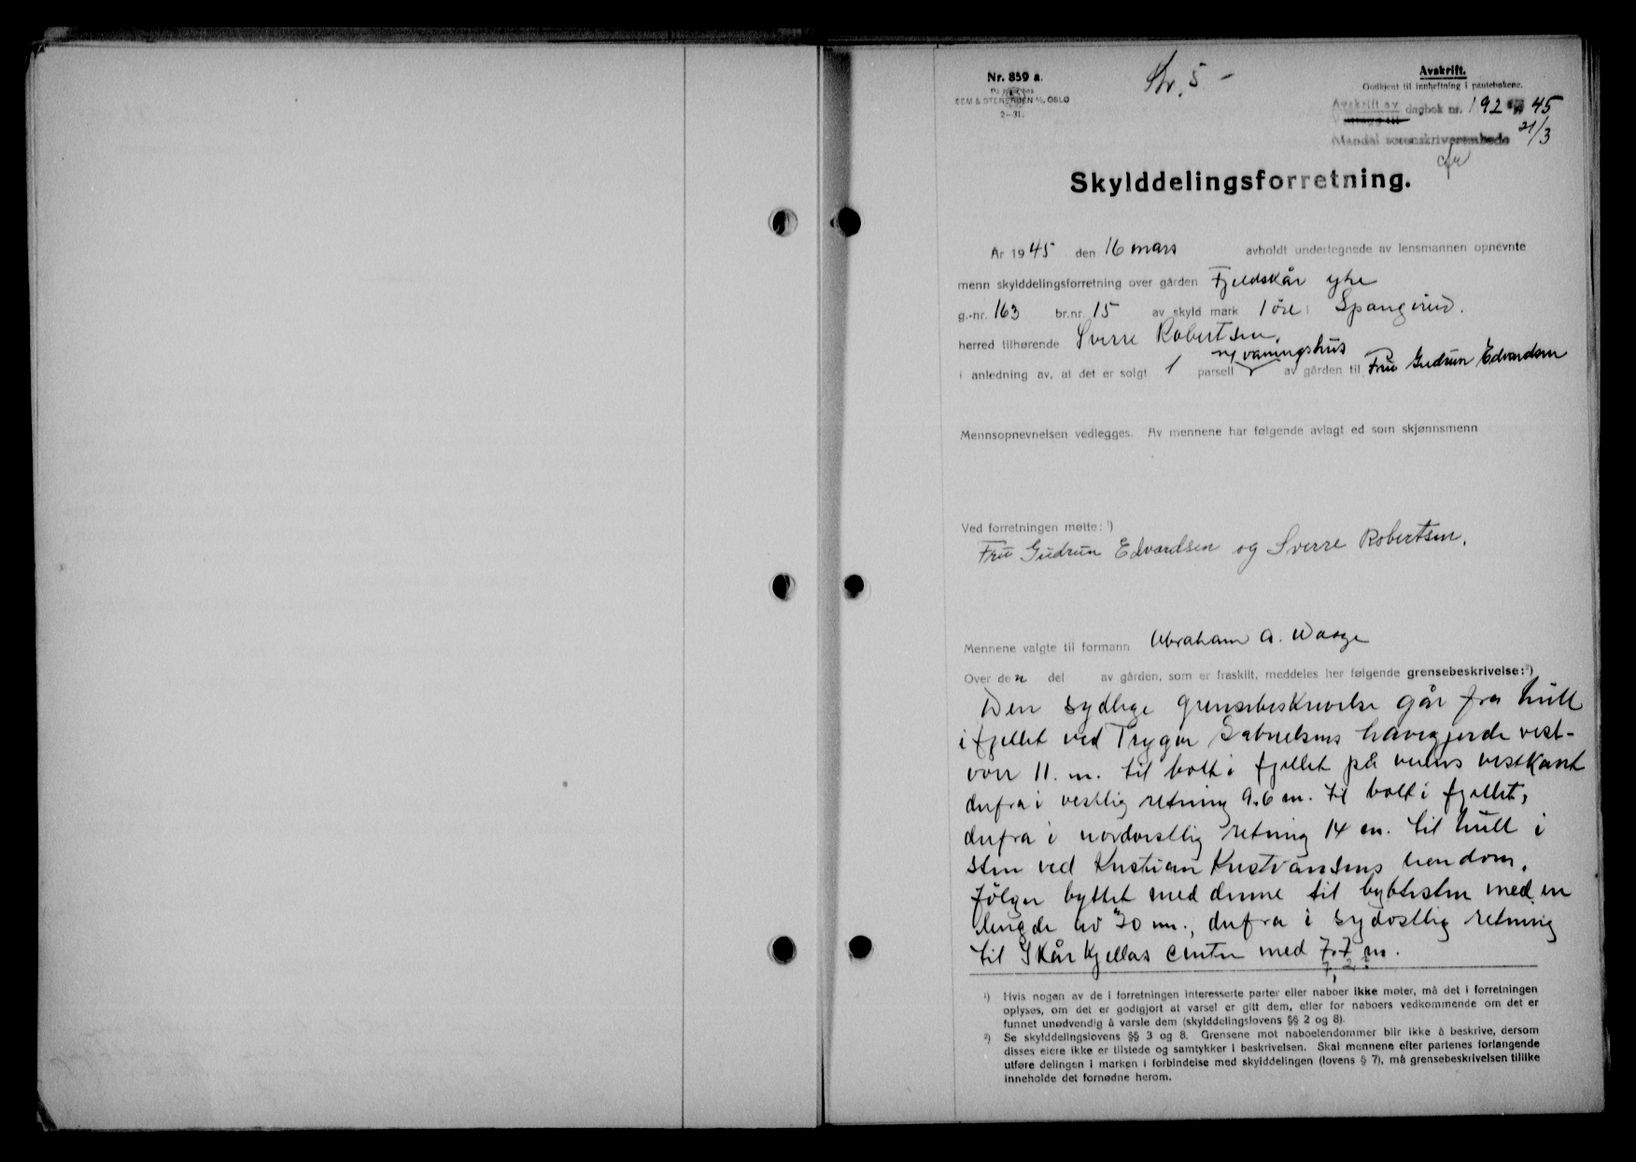 Nr. 859 a.
SEM & STENERSEN A/S, OSLO
2-31.
Kr. 5 -
Avskrift.
Godkjent til innheftning i pantebøkene.
Avskrift av dagbok nr. 192 45
Mandal sorenskriverembede 21/3
Skylddelingsforretning.
År 1945 den 16 mars avholdt undertegnede av lensmannen opnevnte
menn skylddelingsforretning over gården Fjeldskår ytre
g.-nr. 163 br.nr. 15 av skyld mark 1 øre i Spangereid.
herred tilhørende Sverre Robertsen.
m/ våningshus
i anledning av, at det er solgt 1 parsell av gården til Fru Gudrun Edvardsen
Mennsopnevnelsen vedlegges. Av mennene har følgende avlagt ed som skjønnsmenn
Ved forretningen møtte: ¹)
Fru Gudrun Edvardsen og Sverre Robertsen.
Mennene valgte til formann Abraham A. Waage
Over den del av gården, som er fraskilt, meddeles her følgende grensebeskrivelse: ²)
Den sydlige grensebeskrivelse går fra hull
i fjellet ved Trygve Gabrielsens havegjerde vest-
over 11. m. til bolt i fjellet på veiens vestkant
derfra i vestlig retning 9.6 m. til bolt i fjellet,
derfra i nordvestlig retning 14 m. til hull i
sten ved Kristian Kristiansens eiendom.
Følger byttet med denne til byttesten med en
lengde av 30 m., derfra i sydostlig retning
til Skårkjellas center med 7.7 m.
¹) Hvis nogen av de i forretningen interesserte parter eller naboer ikke møter, må det i forretningen
oplyses, om det er godtgjort at varsel er gitt dem, eller for naboers vedkommende om det er
funnet unødvendig å varsle dem (skylddelingslovens §§ 2 og 8).
²) Se skylddelingslovens §§ 3 og 8. Grensene mot naboeiendommer blir ikke å beskrive, dersom
disses eiere ikke er tilstede og samtykker i beskrivelsen. Skal mennene efter partenes forlangende
utføre delingen i marken i forbindelse med skylddelingen (lovens § 7), må grensebeskrivelsen tillike
inneholde det fornødne herom.